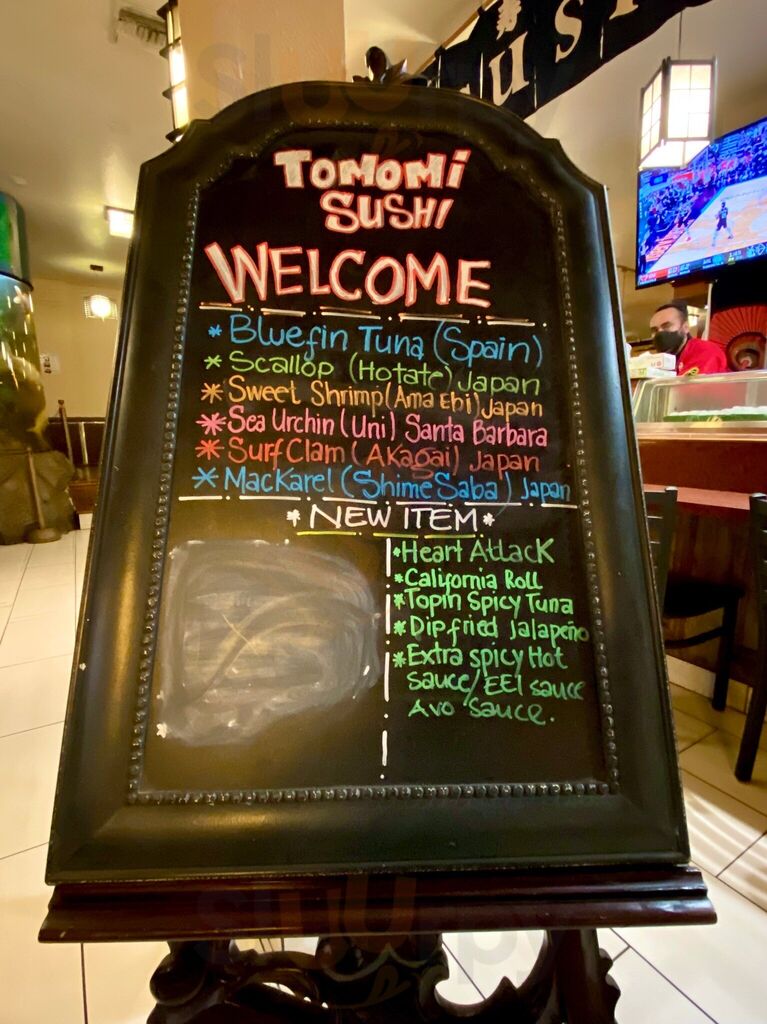 TOMOMI
SUSHI
WELCOME
* Bluefin Tuna (Spain)
* Scallop (Hotate) Japan
* Sweet Shrimp (Ama Ebi) Japan
* Sea Urchin (Uni) Santa Barbara
* Surf Clam (Akagai) Japan
* Mackarel (Shime Saba) Japan
* NEW ITEM *
* Heart Attack
* California Roll
* Topin Spicy Tuna
* Dip fried Jalapeño
* Extra spicy Hot
sauce/EEl sauce
Avo sauce.